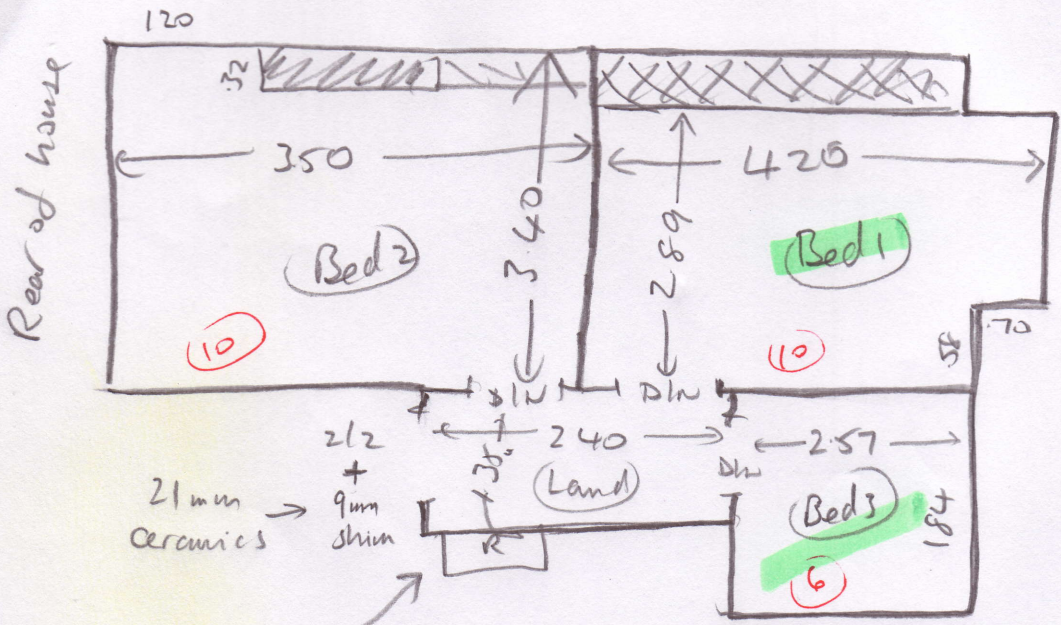 120
Rear of house
.32
3.50
4.20
3.40
2.89
Bed 2
Bed 1
10
10
.58
.70
D/N
D/N
2/2
+
9mm
shim
21mm
ceramics
2.40
Land
R
D/N
2.57
Bed 3
184
6